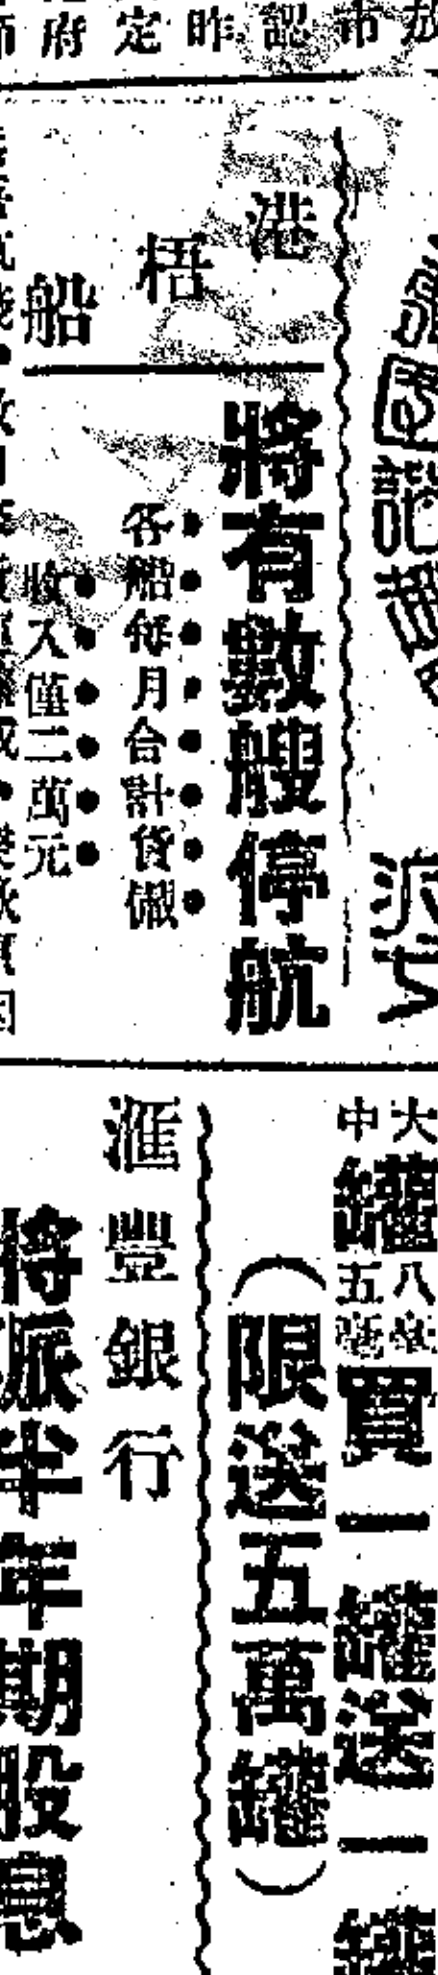 放市認昨定府師
港梧船
將有數艘停航
各船每月合計貨儎
收入僅二萬元
國記
大罐八毫
中罐五毫
買一罐送一罐
（限送五萬罐）
滙豐銀行
將派半年期股息